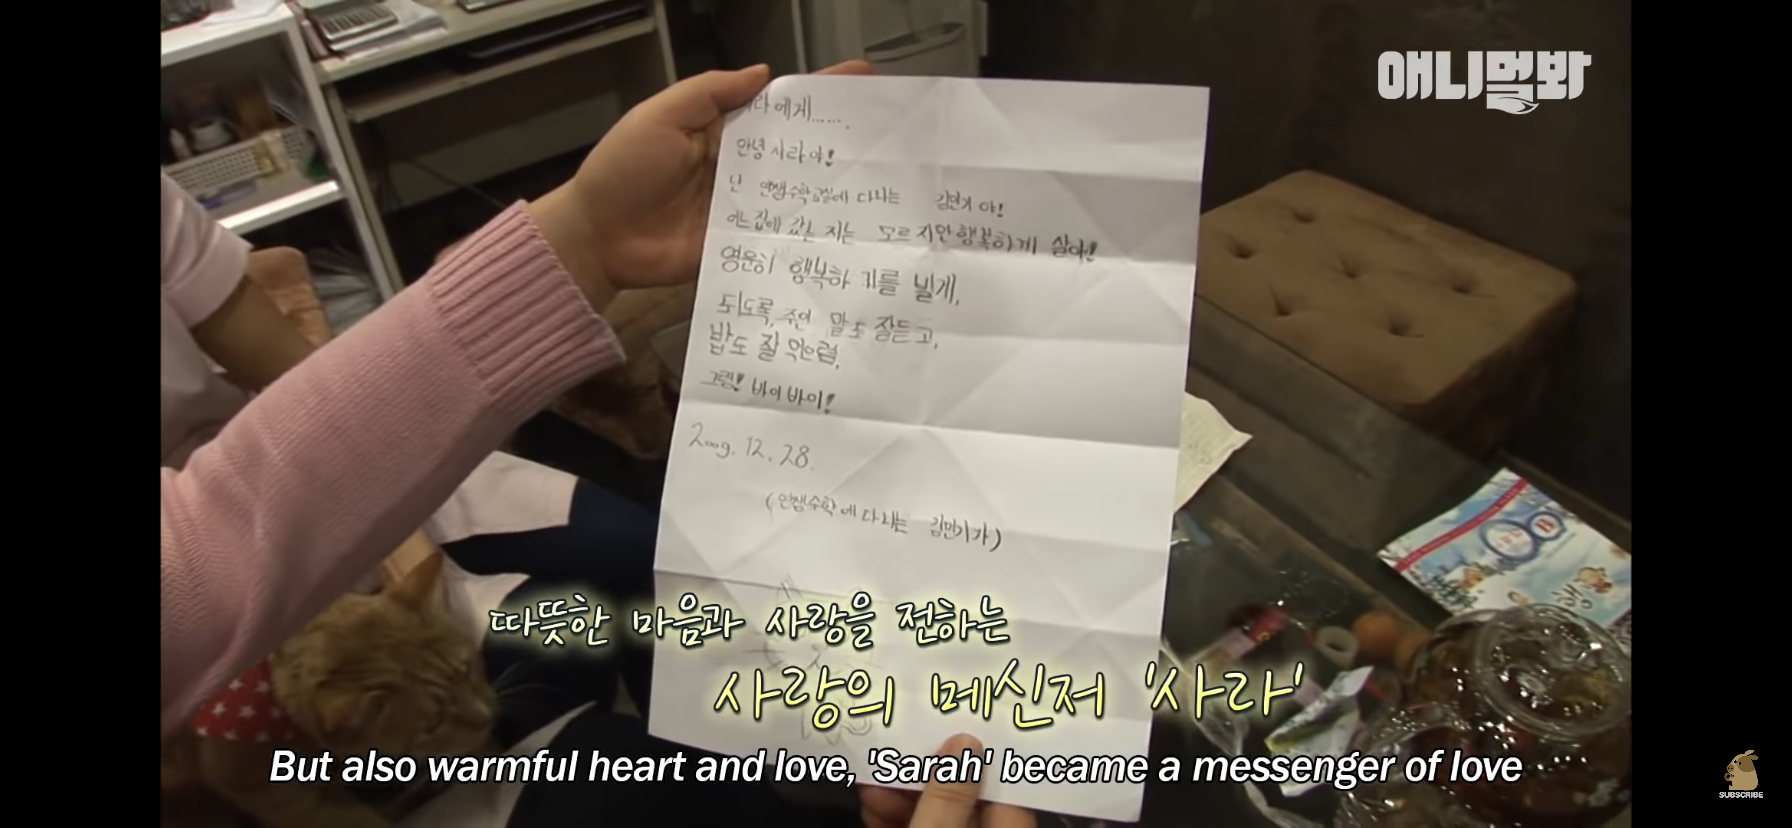 애니멀봐
라에게......
안녕 사라야!
난 연쌤수학교실에 다니는 김민기야!
어느집에 갔는 지는 모르지만 행복하게 살아!
영원히 행복하 기를 빌게,
되도록, 주인 말도 잘듣고,
밥도 잘 먹으렴,
그럼! 바이바이!
2009. 12. 28.
(연쌤수학에 다니는 김민기가)
따뜻한 마음과 사랑을 전하는
사랑의 메신저 '사라'
But also warmful heart and love, 'Sarah' became a messenger of love
SUBSCRIBE